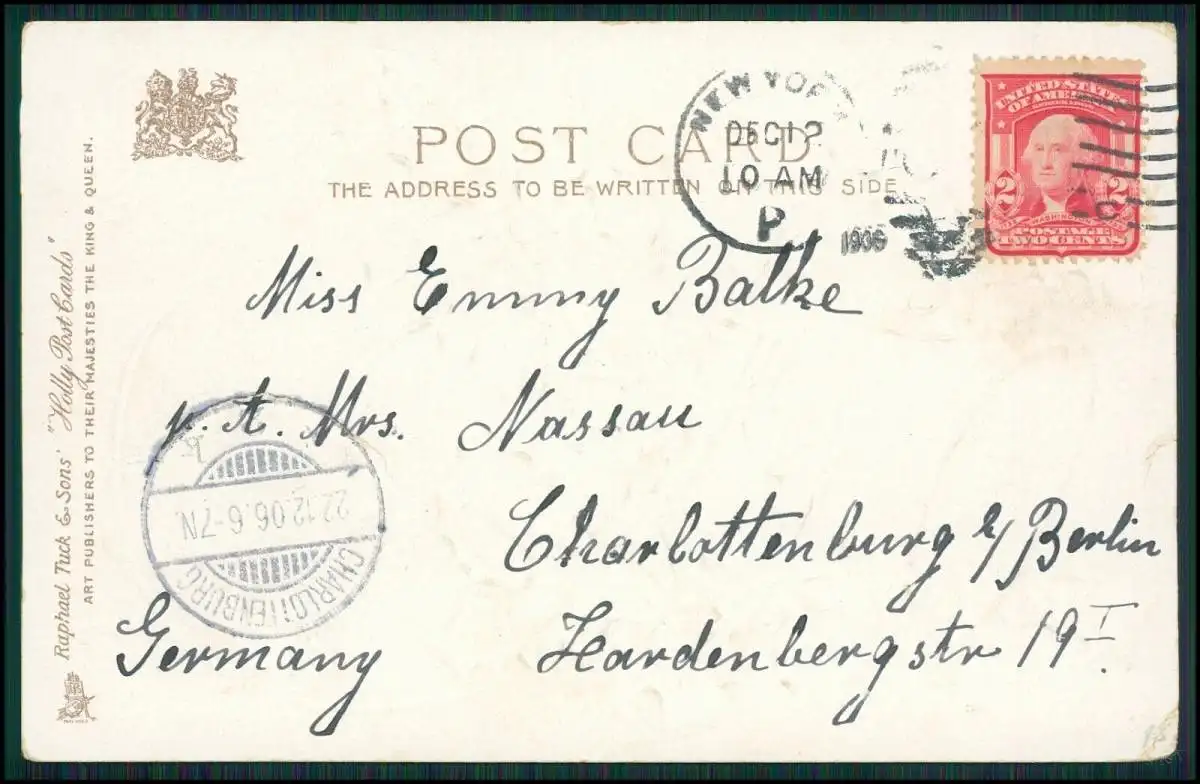 POST CARD
THE ADDRESS TO BE WRITTEN ON THIS SIDE
NEW YORK
DEC 12
10 AM
P
1906
UNITED STATES
OF AMERICA
2 2
WASHINGTON
POSTAGE
TWO CENTS
C
Miss Emmy Batke
p. A. Mrs. Nassau
Charlottenburg b/ Berlin
Hardenbergstr 19 I.
Germany
CHARLOTTENBURG
22.12.06.6-7N.
Raphael Tuck & Sons' "Holly Post Cards"
ART PUBLISHERS TO THEIR MAJESTIES THE KING & QUEEN.